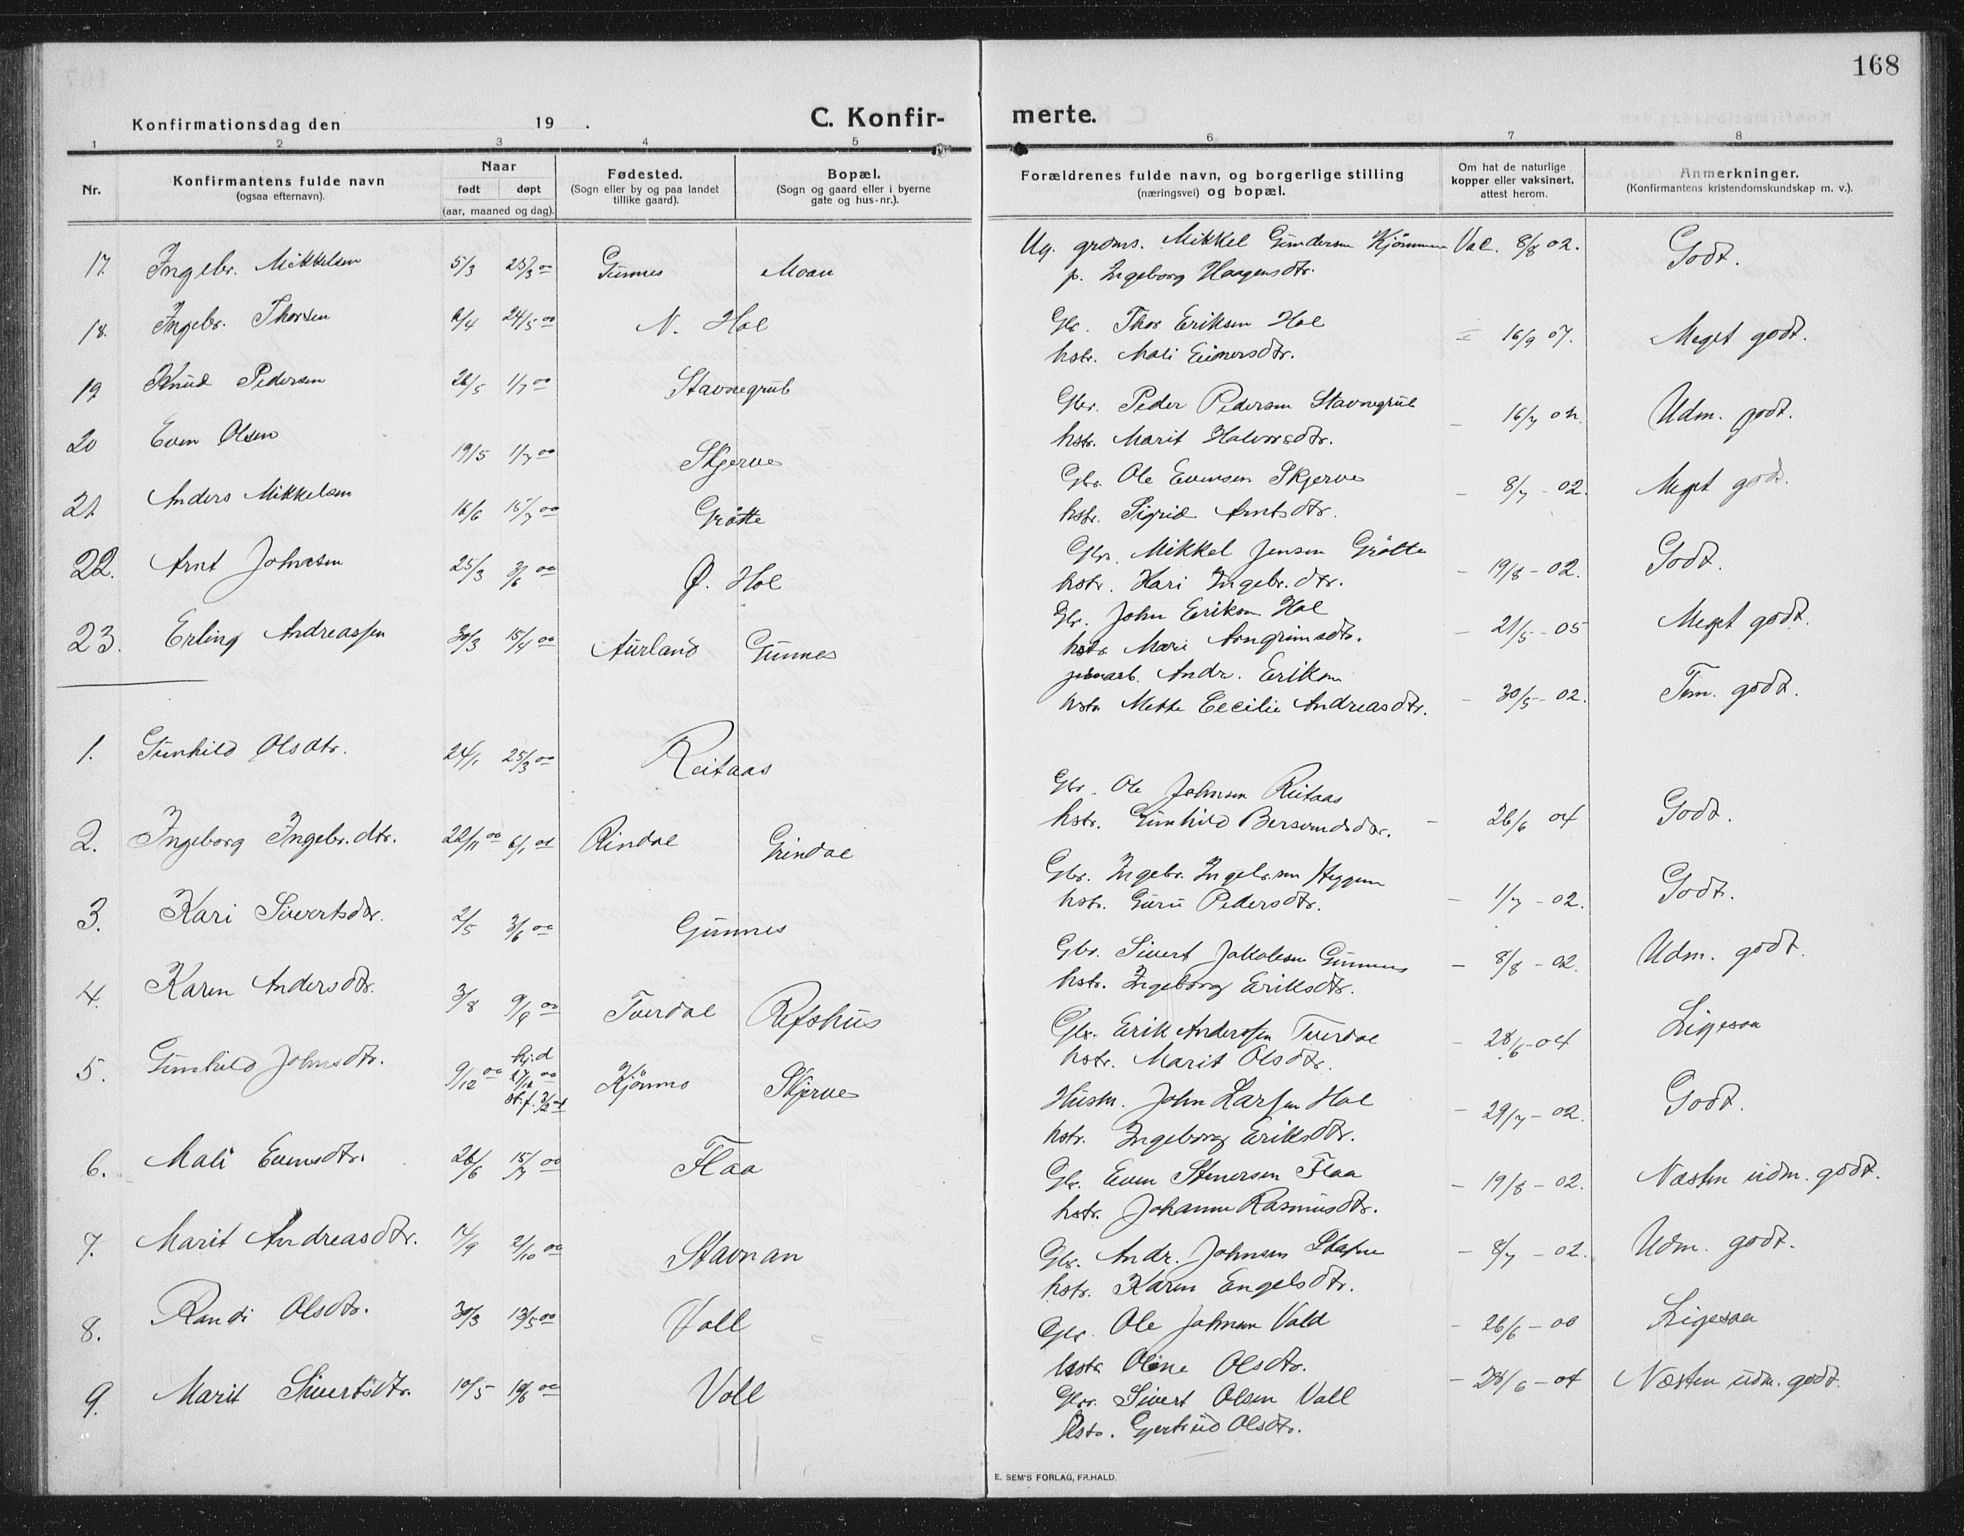 168
Konfirmationsdag den 19 .
C. Konfirmerte.
1 2 3 4 5 6 7 8
Nr.
Konfirmantens fulde navn
(ogsaa efternavn).
Naar
født døpt
(aar, maaned og dag).
Fødested.
(Sogn eller by og paa landet
tillike gaard).
Bopæl.
(Sogn og gaard eller i byerne
gate og hus-nr.).
Forældrenes fulde navn, og borgerlige stilling
(næringsvei) og bopæl.
Om hat de naturlige
kopper eller vaksinert,
attest herom.
Anmerkninger.
(Konfirmantens kristendomskundskap m. v.).
17. Ingebr. Mikkelsen 5/3 25/3 00 Gunnes Moan
Ug. grdms. Mikkel Gundersen Kjømme Vac. 8/8 02. Godt.
p. Ingeborg Haagensdtr.
18. Ingebr. Thorsen 6/4 24/5 00 N. Hol
Gbr. Thor Eriksen Hol
hstr. Mali Einersdtr. = 16/9 07. Meget godt.
19 Knud Pedersen 26/5 1/7 00 Stavnegrub
Gbr. Peder Pedersen Stavnegrub
hstr. Marit Halvorsdtr. - 16/7 02. Udm. godt.
20 Even Olsen 19/5 1/7 00 Skjerve
Gbr. Ole Evensen Skjerve
hstr. Sigrid Arntsdtr. - 8/7 - 02. Meget godt.
21. Anders Mikkelsen 16/6 15/7 00 Grøtte
Gbr. Mikkel Jensen Grøtte
hstr. Kari Ingebr.dtr. - 19/8 - 02. Godt.
22. Arnt Johnsen 25/3 3/6 00 Ø. Hol
Gbr. John Eriksen Hol
hstr. Mari Arngrimsdtr. - 21/5 - 05 Meget godt.
23. Erling Andreassen 30/3 15/4 00 Aurland Gunnes
jernarb. Andr. Eriksen
hstr. Mette Cecilie Andreasdtr. - 30/5 - 02. Tem. godt.
1. Gunhild Olsdtr. 24/1 25/3 00 Reitaas
Gbr. Ole Johnsen Reitaas
hstr. Gunhild Bersvendsdtr. - 26/6 04 Godt.
2. Ingeborg Ingebr.dtr. 22/11 00 6/1 01 Rindal Grindal
Gbr. Ingebr. Ingebr.sen Heggem
hstr. Guru Pedersdtr. - 1/7 - 02. Godt.
3. Kari Sivertsdtr. 2/5 3/6 00 Gunnes
Gbr. Sivert Jakobsen Gunnes
hstr. Ingeborg Eriksdtr. - 8/8 - 02. Udm. godt.
4. Karen Andersdtr. 3/8 9/9 00 Tverdal Refshus
Gbr. Erik Anderssen Tverdal
hstr. Marit Olsdtr. - 28/6 - 04 Ligesaa
5. Gunhild Johnsdtr. 9/12 00 hj.d 27/12 00 st.f. 3/2 01 Kjønmo Skjerve
Husm. John Larssen Hol
hstr. Ingeborg Eriksdtr. - 29/7 - 02. Godt.
6. Mali Evensdtr. 26/6 15/7 00 Flaa
Gbr. Even Stenersen Flaa
hstr. Johanne Rasmusdtr. - 19/8 - 02. Næsten udm. godt.
7. Marit Andreasdtr. 14/9 2/10 00 Stavnan
Gbr. Andr. Johnsen Stafne
hstr. Karen Engelsdtr. - 8/7 - 02. Udm. godt.
8. Randi Olsdtr. 30/3 13/5 00 Voll
Gbr. Ole Johnsen Vold
hstr. Oline Olsdtr. - 26/6 - 00 Ligesaa
9. Marit Sivertsdtr. 10/5 10/6 00 Voll
Gbr. Sivert Olsen Voll
hstr. Gjertrud Olsdtr. - 28/6 - 04 Næsten udm. godt.
E. SEM'S FORLAG, FR.HALD.